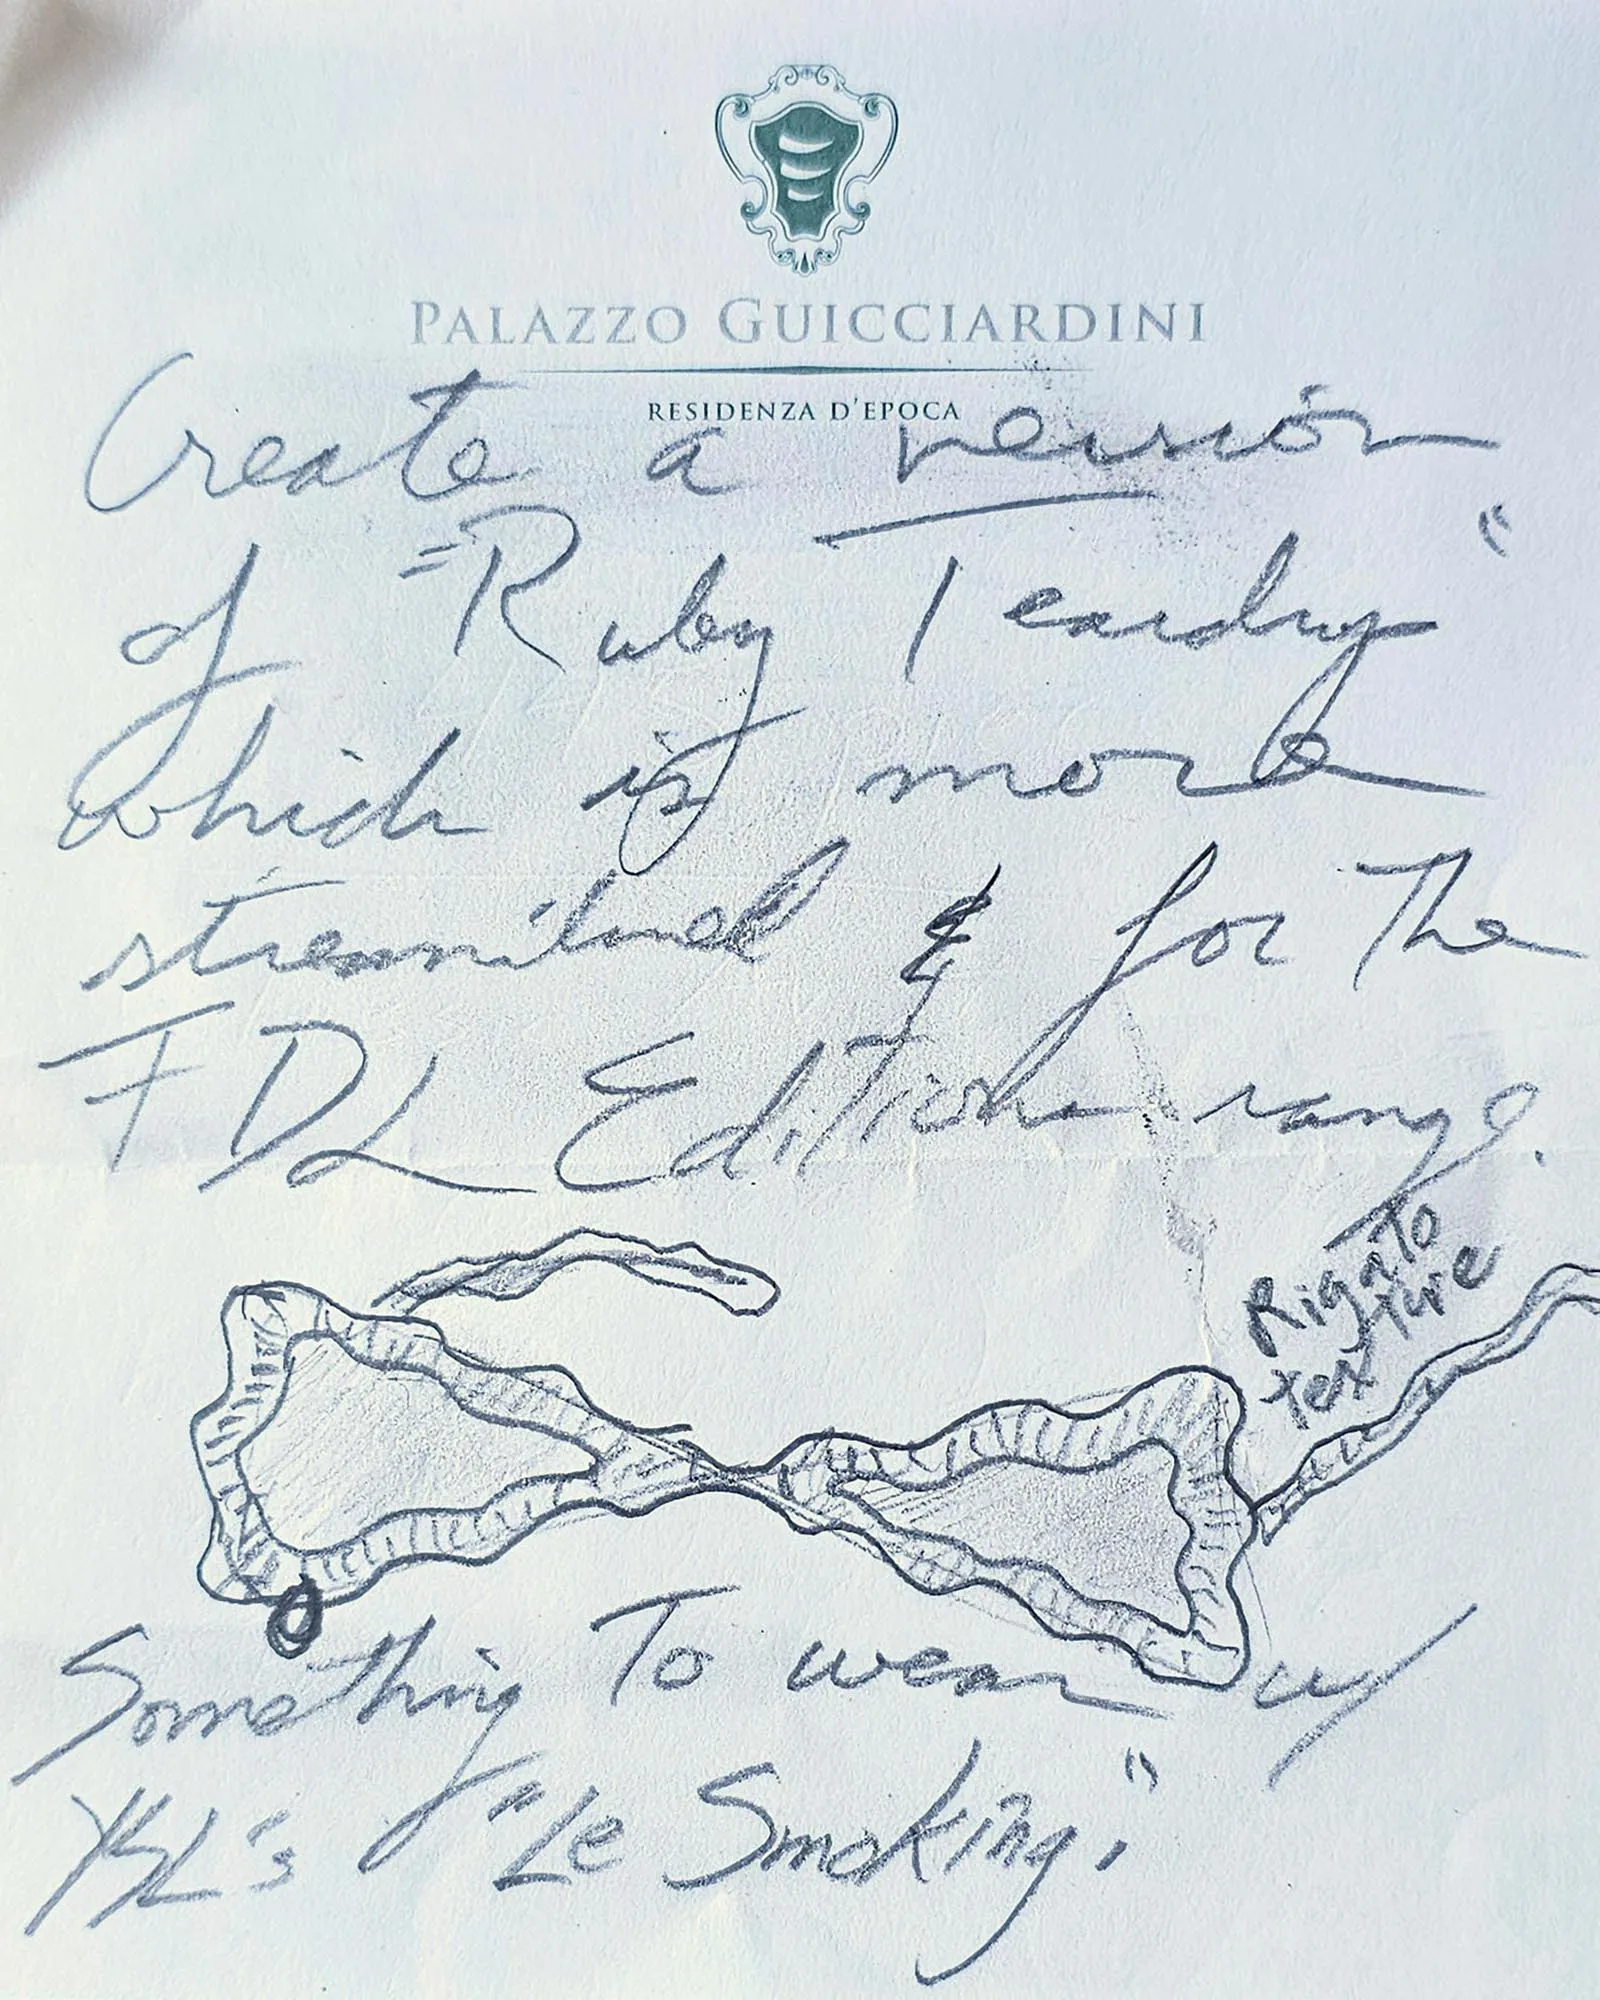 PALAZZO GUICCIARDINI
RESIDENZA D'EPOCA
Create a version
of "Ruby Teardrop"
which is more
streamlined & for the
FDL Editions range.
Rigato
texture
Something To wear w/
YSL's "Le Smoking."